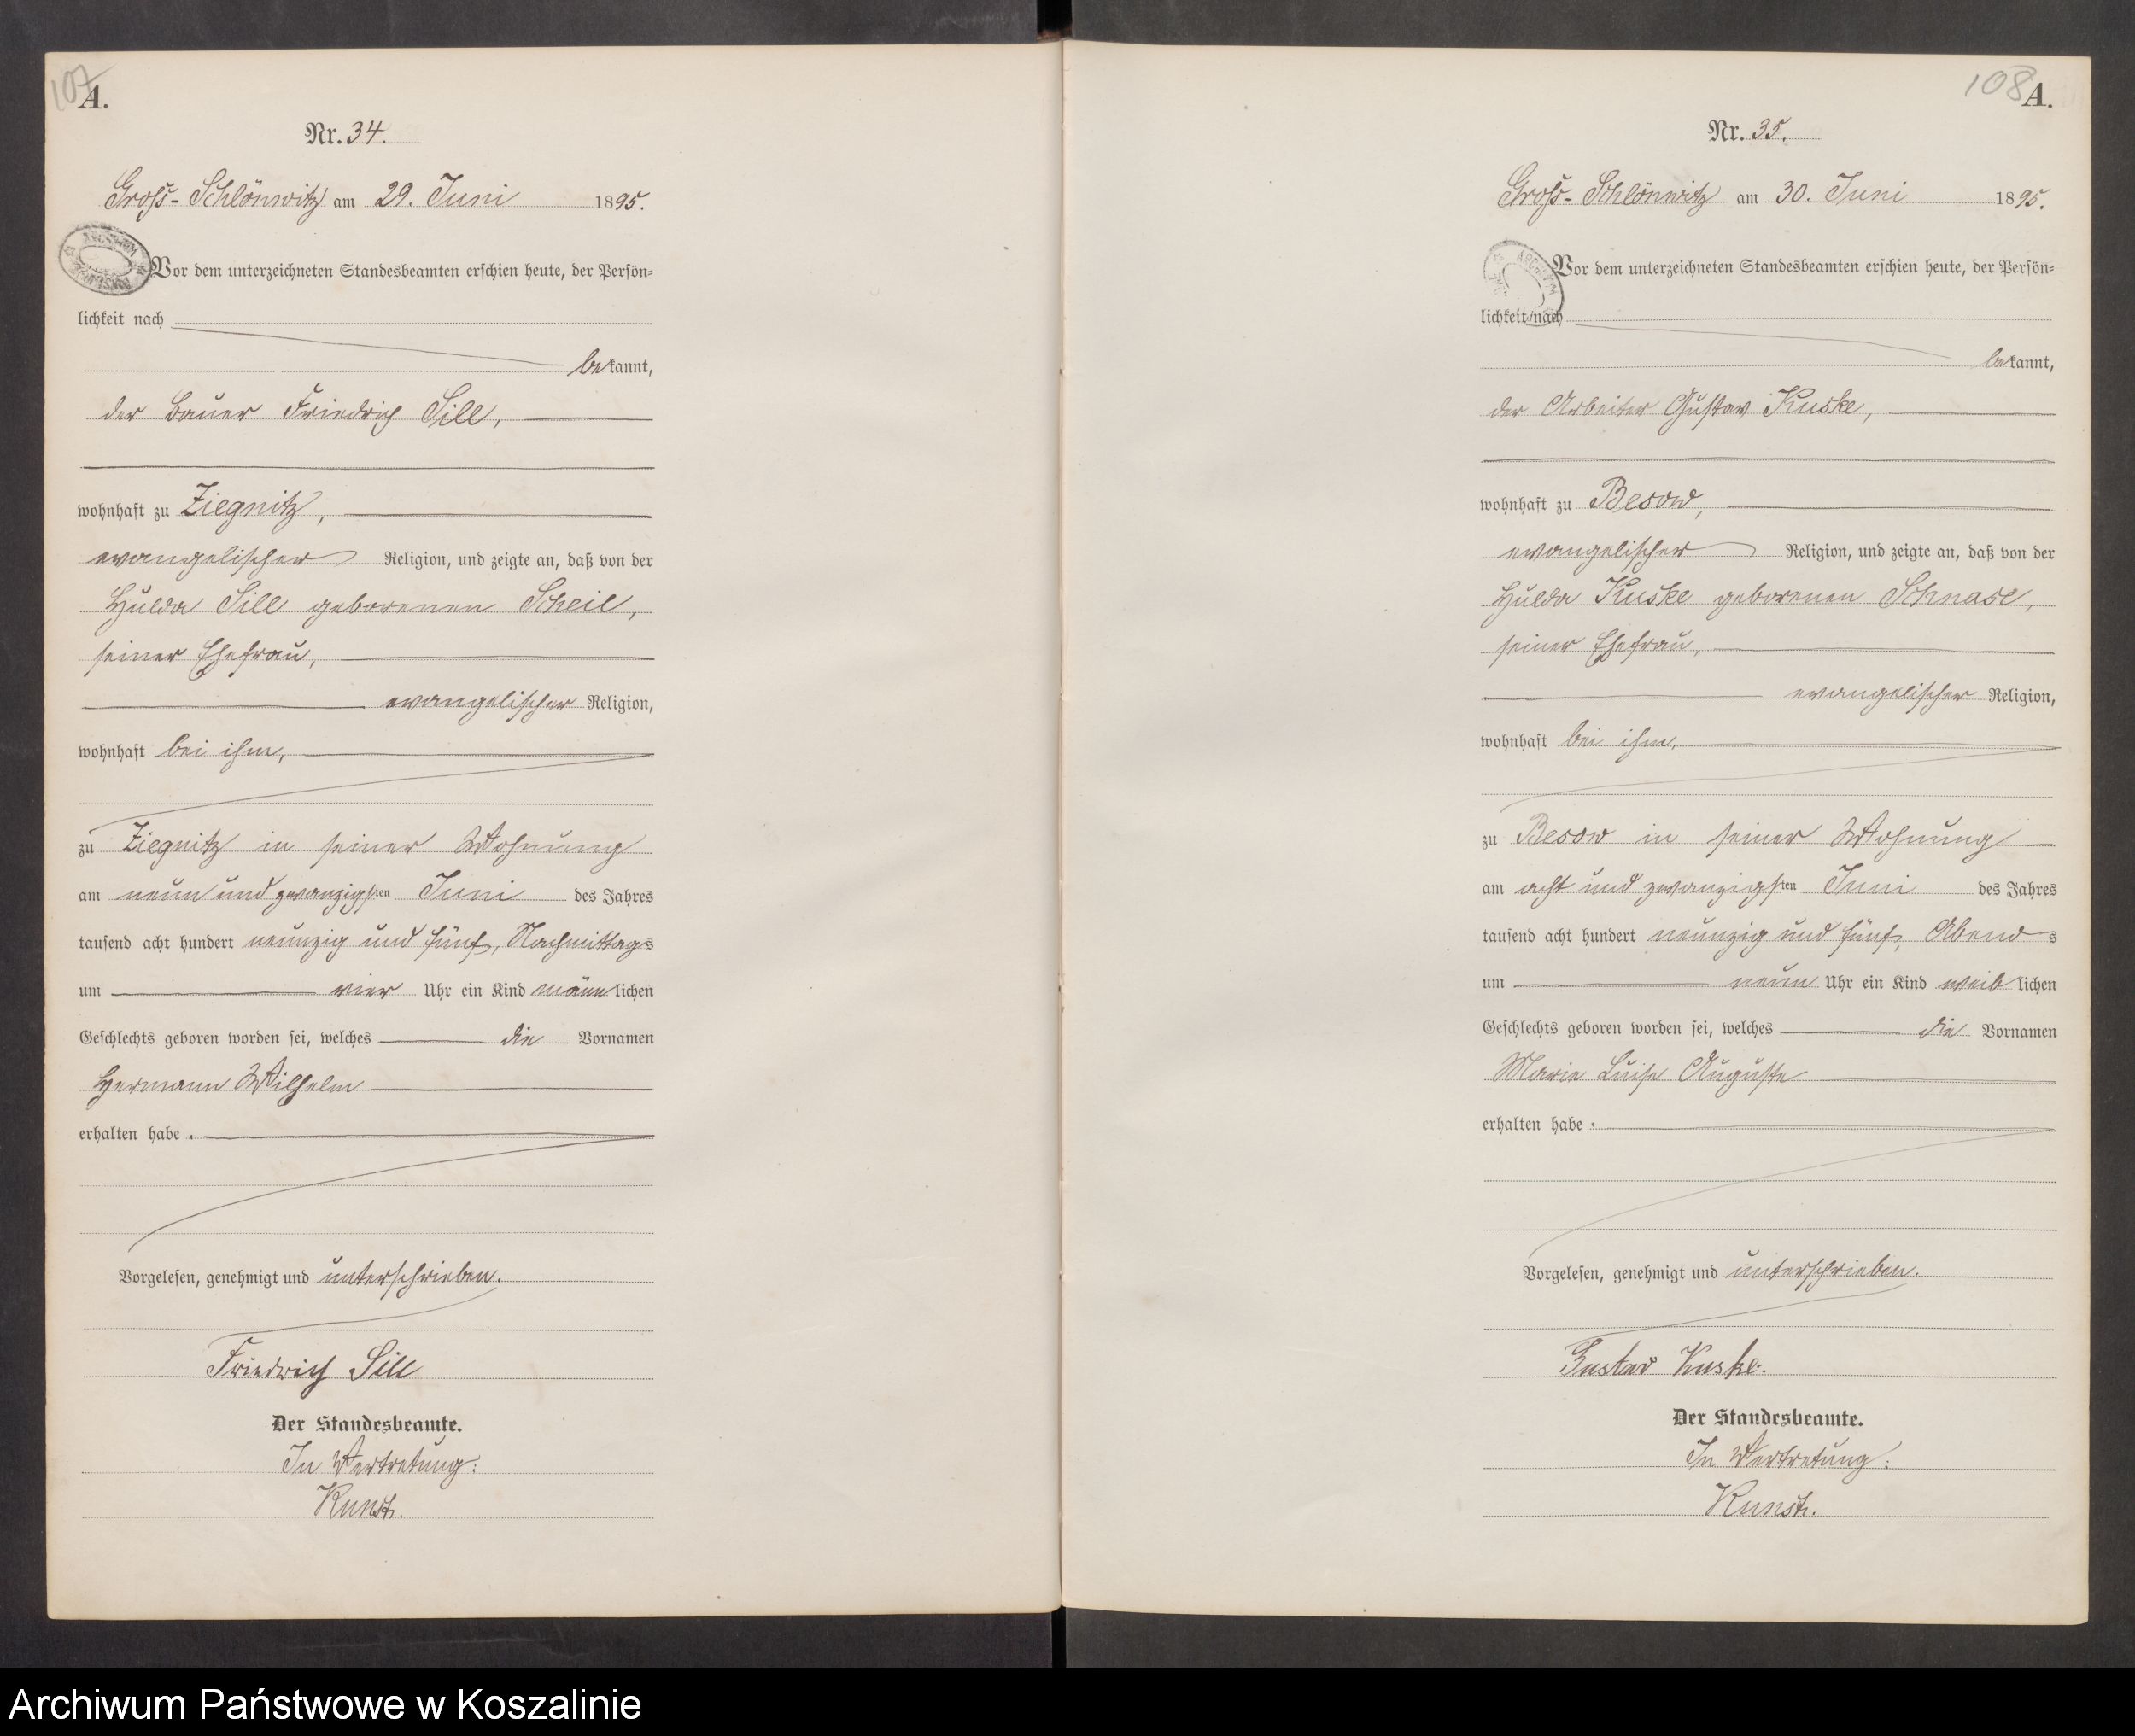 107
A.
Nr. 34.
Groß-Schlönwitz am 29. Juni 1895.
Vor dem unterzeichneten Standesbeamten erschien heute, der Persön-
lichkeit nach
bekannt,
der Bauer Friedrich Sill,
wohnhaft zu Ziegnitz,
evangelischer Religion, und zeigte an, daß von der
Hulda Sill geborenen Scheil,
seiner Ehefrau,
evangelischer Religion,
wohnhaft bei ihm,
zu Ziegnitz in seiner Wohnung
am neun und zwanzigsten Juni des Jahres
tausend acht hundert neunzig und fünf, Nachmittags
um vier Uhr ein Kind männlichen
Geschlechts geboren worden sei, welches die Vornamen
Hermann Wilhelm
erhalten habe.
Vorgelesen, genehmigt und unterschrieben.
Friedrich Sill
Der Standesbeamte.
In Vertretung:
Kunst.
108
A.
Nr. 35.
Groß-Schlönwitz am 30. Juni 1895.
Vor dem unterzeichneten Standesbeamten erschien heute, der Persön-
lichkeit nach
bekannt,
der Arbeiter Gustav Kuske,
wohnhaft zu Besow,
evangelischer Religion, und zeigte an, daß von der
Hulda Kuske geborenen Schnase,
seiner Ehefrau,
evangelischer Religion,
wohnhaft bei ihm,
zu Besow in seiner Wohnung
am acht und zwanzigsten Juni des Jahres
tausend acht hundert neunzig und fünf, Abends
um neun Uhr ein Kind weiblichen
Geschlechts geboren worden sei, welches die Vornamen
Marie Luise Auguste
erhalten habe.
Vorgelesen, genehmigt und unterschrieben.
Gustav Kuske.
Der Standesbeamte.
In Vertretung:
Kunst.
Archiwum Państwowe w Koszalinie